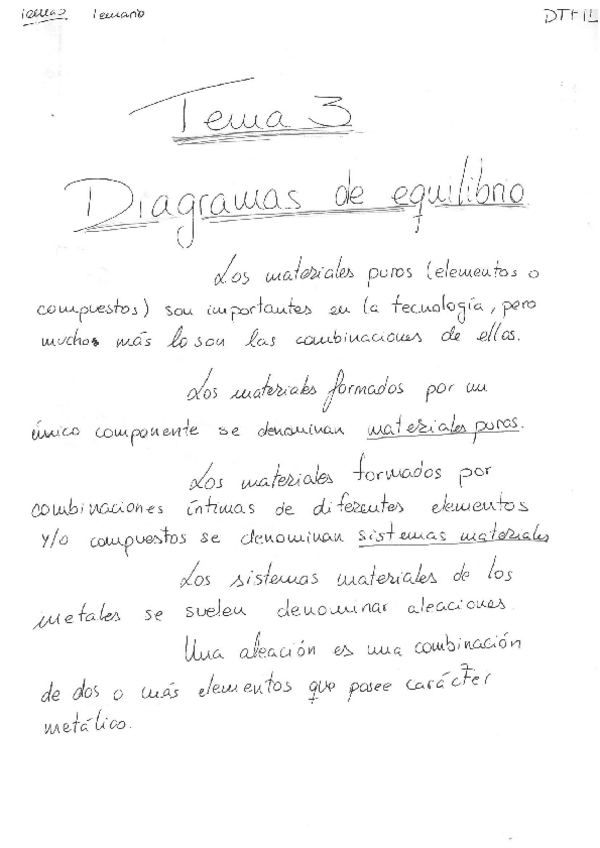 Tema 3 Temario DTFIL
Tema 3
Diagramas de equilibrio
Los materiales puros (elementos o
compuestos) son importantes en la tecnología, pero
muchos más lo son las combinaciones de ellos.
Los materiales formados por un
único componente se denominan materiales puros.
Los materiales formados por
combinaciones íntimas de diferentes elementos
y/o compuestos se denominan sistemas materiales
Los sistemas materiales de los
metales se suelen denominar aleaciones.
Una aleación es una combinación
de dos o más elementos que posee carácter
metálico.